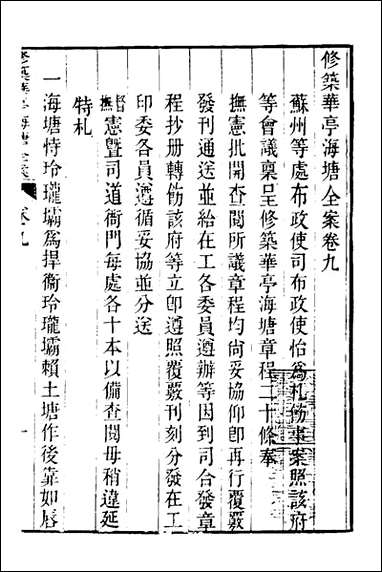 修築華亭海塘全案卷九
蘇州等處布政使司布政使怡爲札飭事案照該府
等會議稟呈修築華亭海塘章程二十條奉
撫憲批開查閱所議章程均尚妥協仰卽再行覆覈
發刊通送並給在工各委員遵辦等因到司合發章
程抄册轉飭該府等立卽遵照覆覈刊刻分發在工
印委各員遵循妥協並分送
督撫憲暨司道衙門每處各十本以備查閱毋稍違延
特札
一海塘恃玲瓏壩爲捍衞玲瓏壩賴土塘作後靠如唇
修築華亭海塘全案 卷九 一